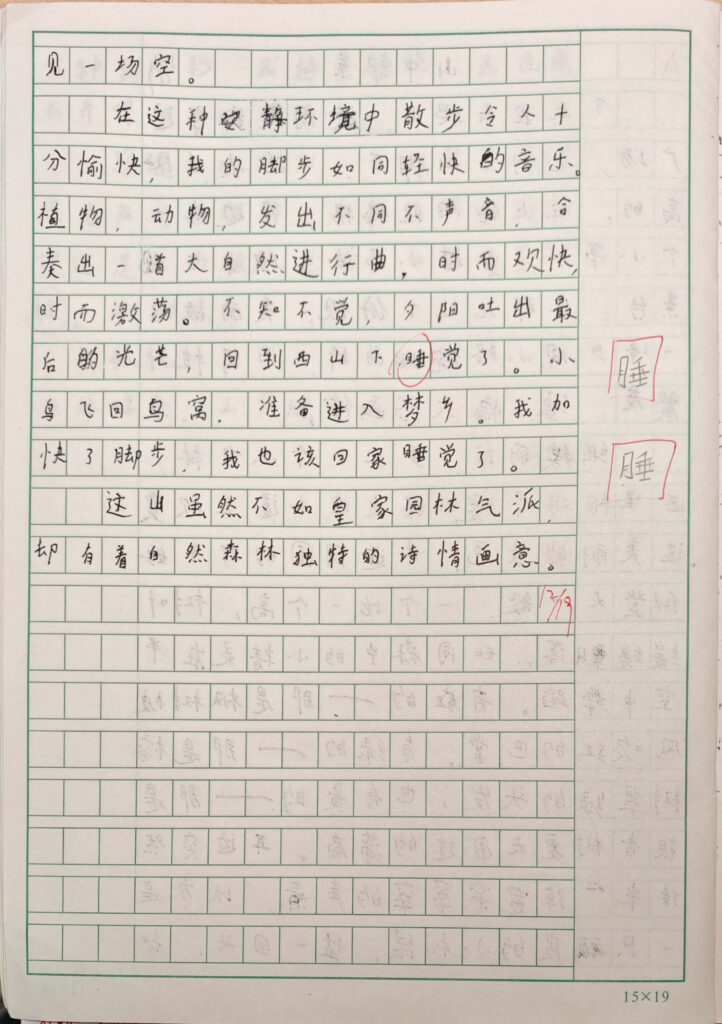 见一场空。
在这种安静环境中散步令人十
分愉快，我的脚步如同轻快的音乐。
植物，动物，发出不同不声音，合
奏出一道大自然进行曲，时而欢快，
时而激荡。不知不觉，夕阳吐出最
后的光芒，回到西山下睡觉了。小
鸟飞回鸟窝，准备进入梦乡。我加
快了脚步，我也该回家睡觉了。
这山虽然不如皇家园林气派，
却有着自然森林独特的诗情画意。
睡
睡
12/19
15×19